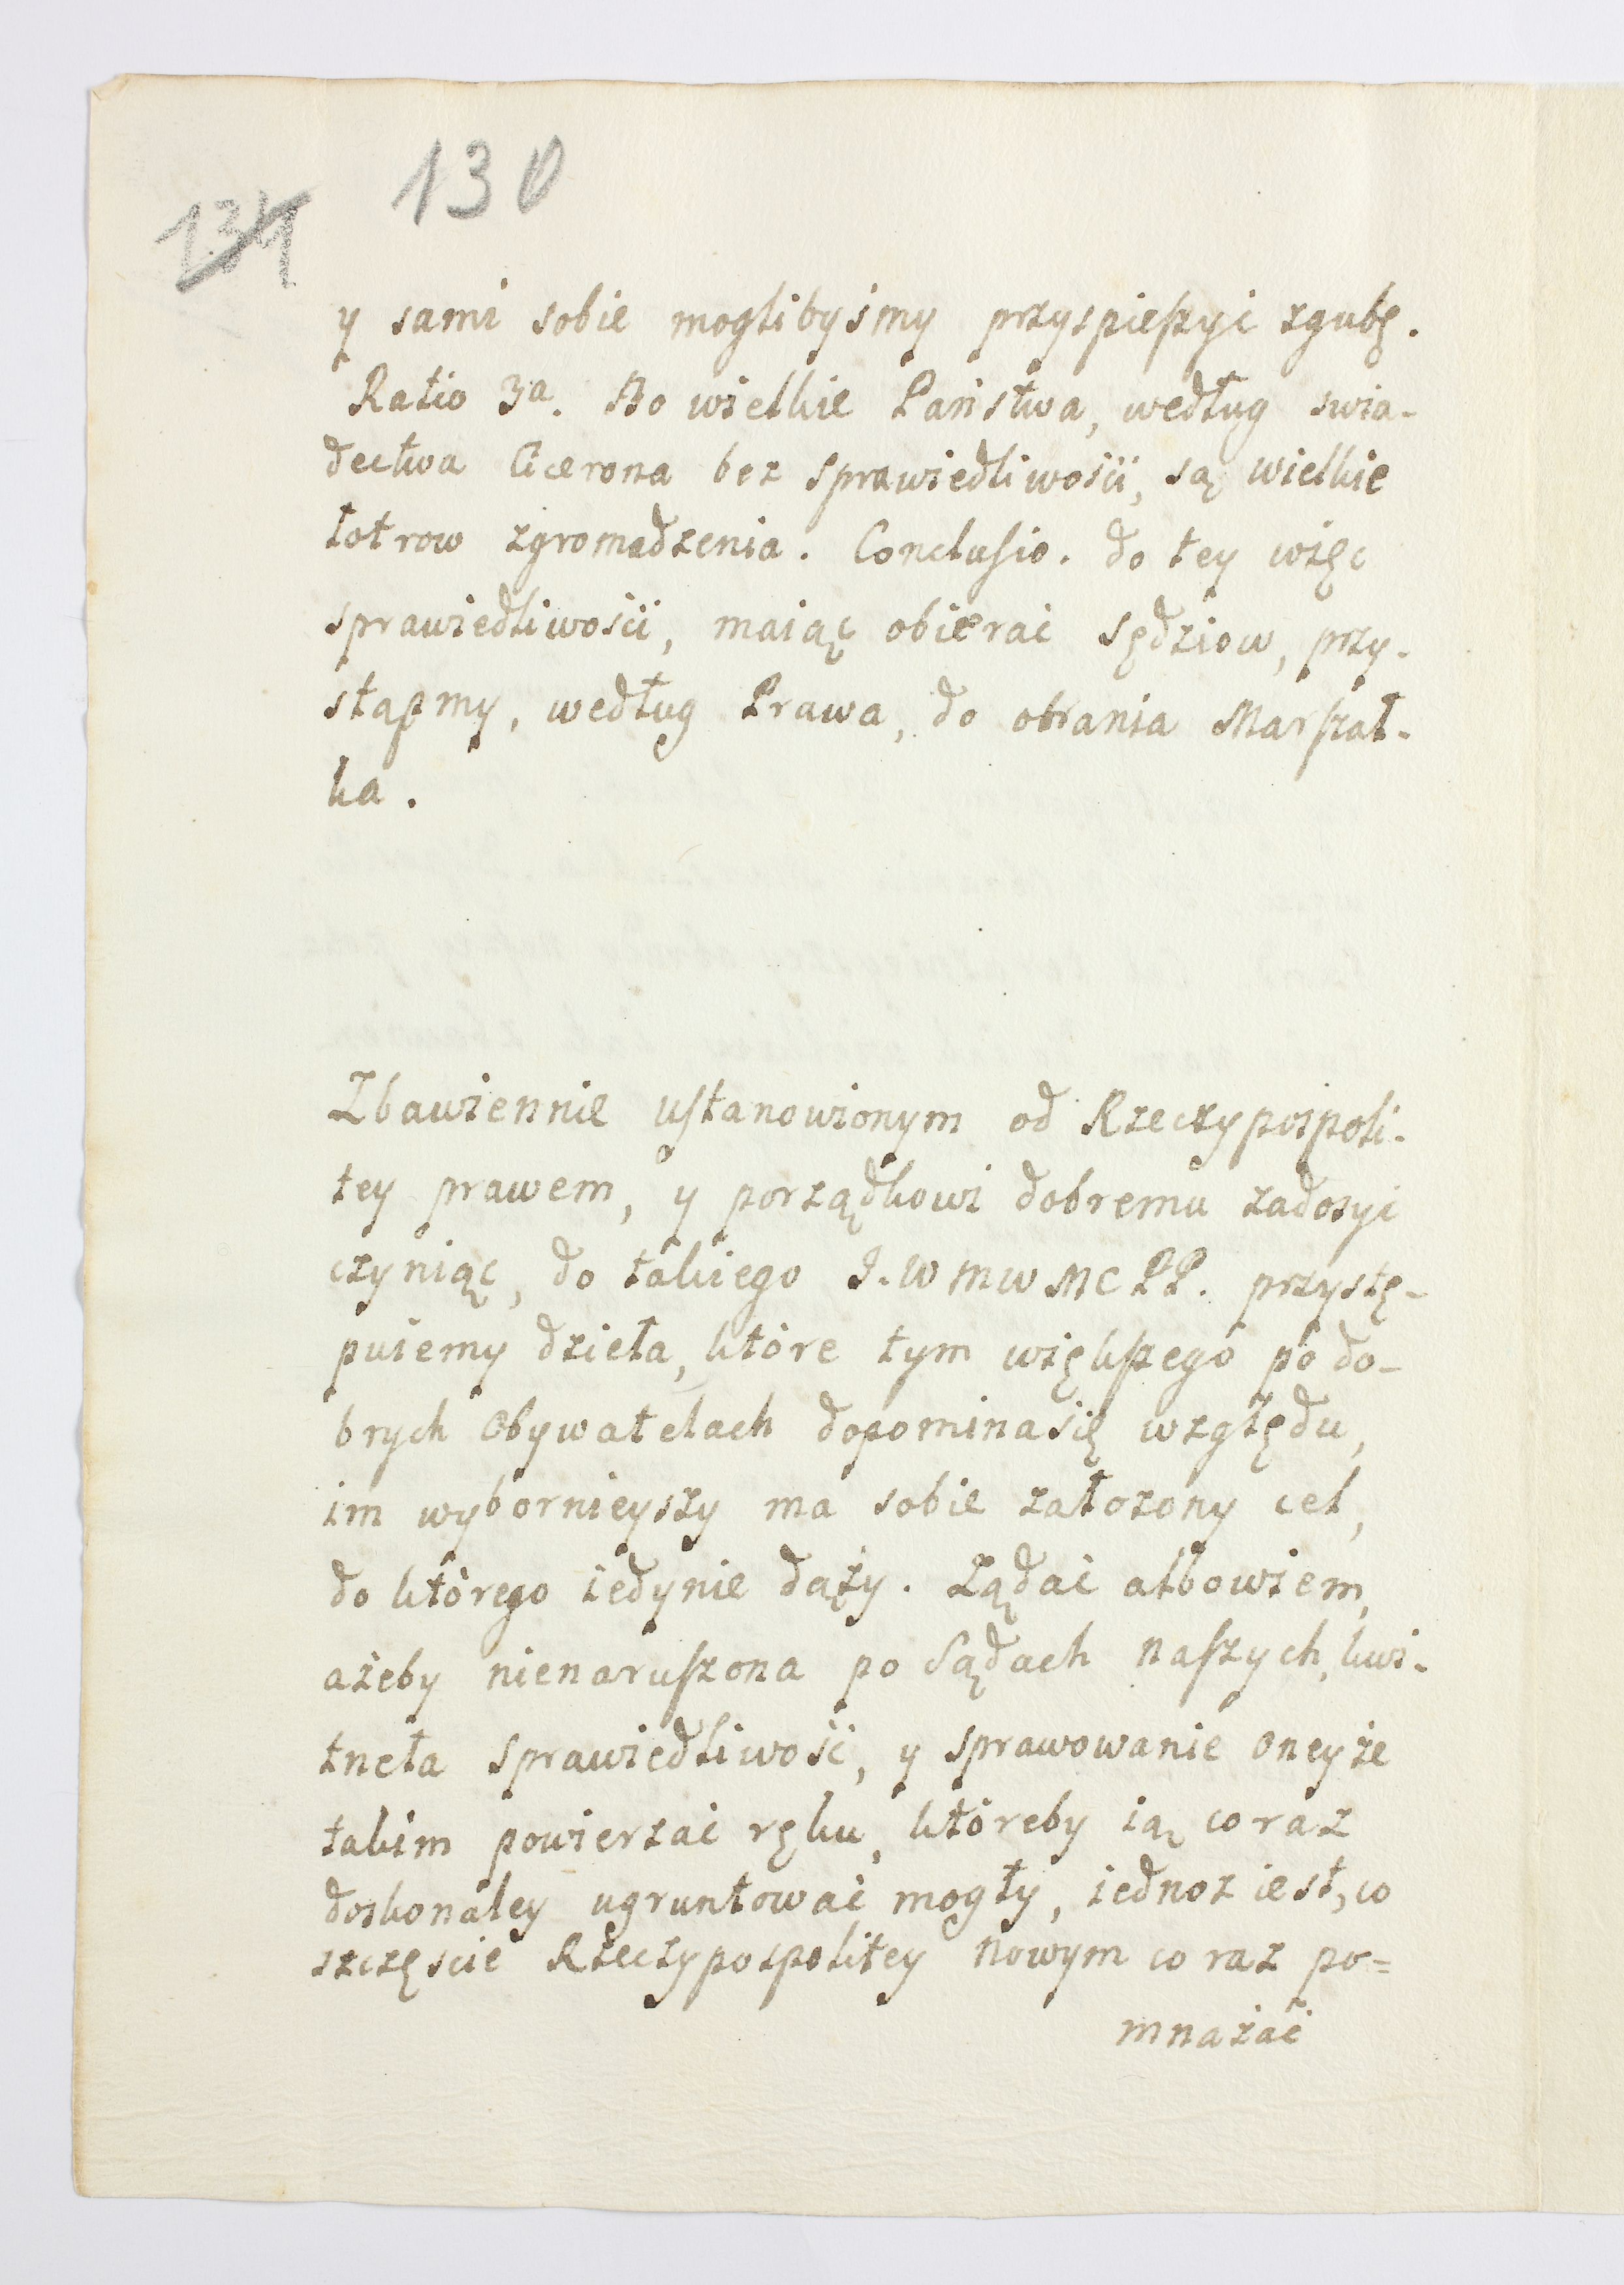 130
131
y sami sobie moglibyśmy przyspieszyć zgubę.
Ratio 3a. Bo wielkie Państwa, według swia-
dectwa Cicerona bez sprawiedliwości, są wielkie
łotrow zgromadzenia. Conclusio. do tey więc
sprawiedliwości, maiąc obierać sędziow, przy-
stąpmy, według Prawa, do obrania Marszał-
ka.
Zbawiennie ustanowionym od Rzeczypospoli-
tey prawem, y porządkowi dobremu zadosyć
czyniąc, do takiego J.W M W MC PP. przystę-
puiemy dzieła, które tym większego po do-
brych Obywatelach dopomina się względu,
im wybornieyszy ma sobie założony cel,
do którego iedynie dąży. Żądać albowiem,
ażeby nienaruszona po Sądach naszych, kwi-
tneła sprawiedliwość, y sprawowanie oneyże
takim powierzać ręku, któreby ią co raz
doskonaley ugruntować mogły, iednoż iest, co
szczęscie Rzeczypospolitey nowym co raz po=
mnażać